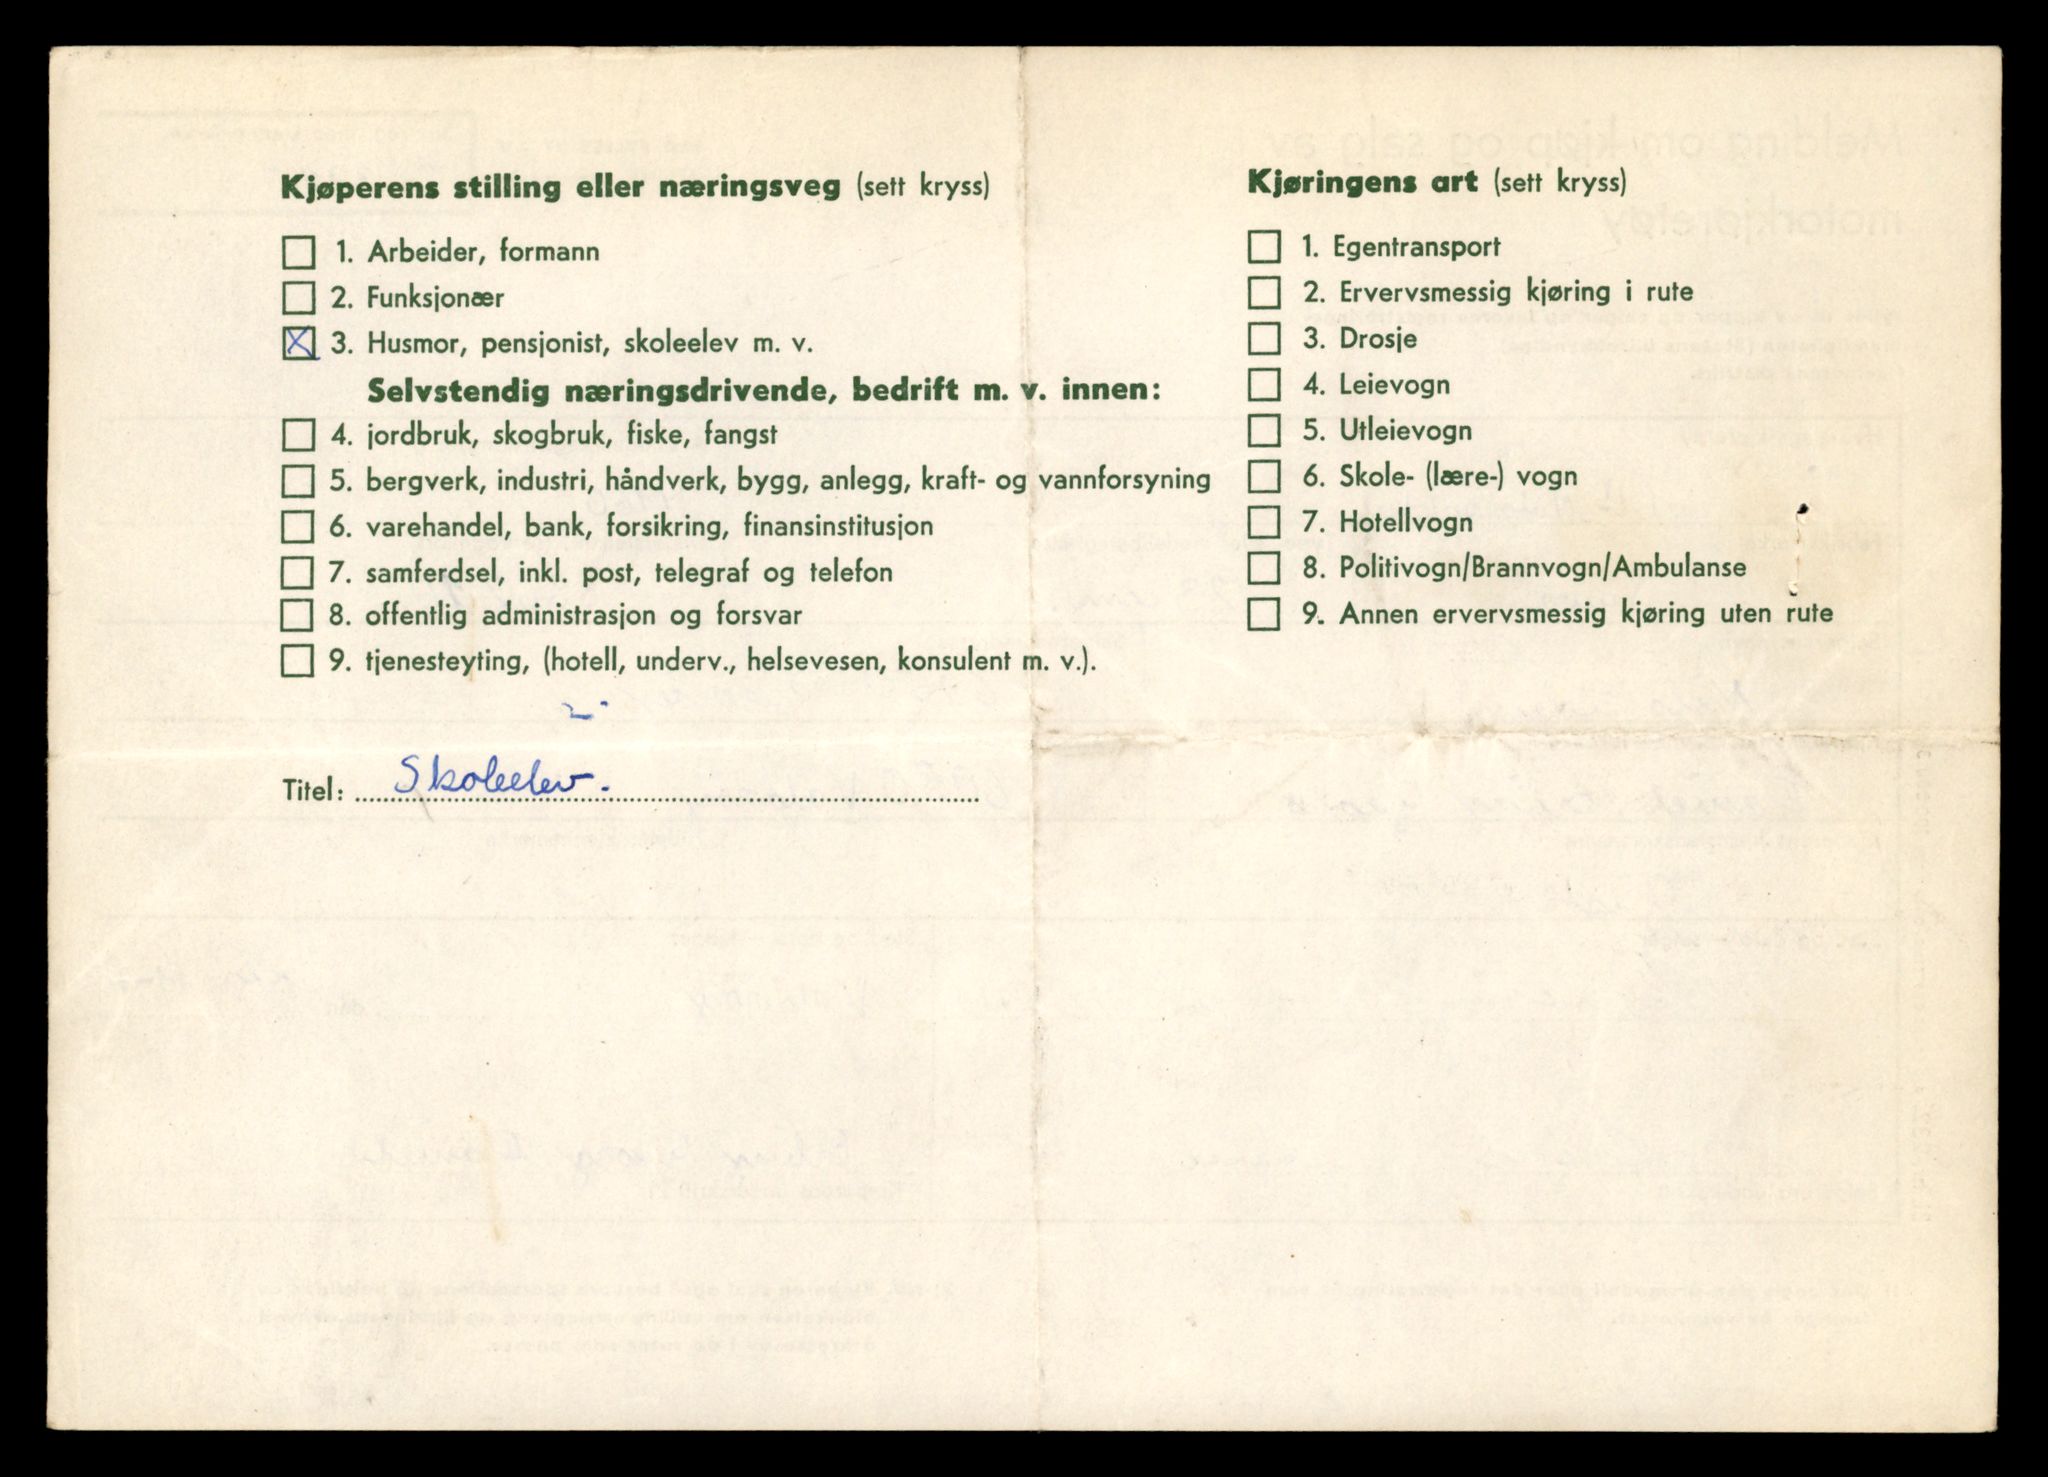 Kjøperens stilling eller næringsveg (sett kryss)
1. Arbeider, formann
2. Funksjonær
3. Husmor, pensjonist, skoleelev m. v.
Selvstendig næringsdrivende, bedrift m. v. innen:
4. jordbruk, skogbruk, fiske, fangst
5. bergverk, industri, håndverk, bygg, anlegg, kraft- og vannforsyning
6. varehandel, bank, forsikring, finansinstitusjon
7. samferdsel, inkl. post, telegraf og telefon
8. offentlig administrasjon og forsvar
9. tjenesteyting, (hotell, underv., helsevesen, konsulent m. v.).
Titel: Skoleelev.
Kjøringens art (sett kryss)
1. Egentransport
2. Ervervsmessig kjøring i rute
3. Drosje
4. Leievogn
5. Utleievogn
6. Skole- (lære-) vogn
7. Hotellvogn
8. Politivogn/Brannvogn/Ambulanse
9. Annen ervervsmessig kjøring uten rute